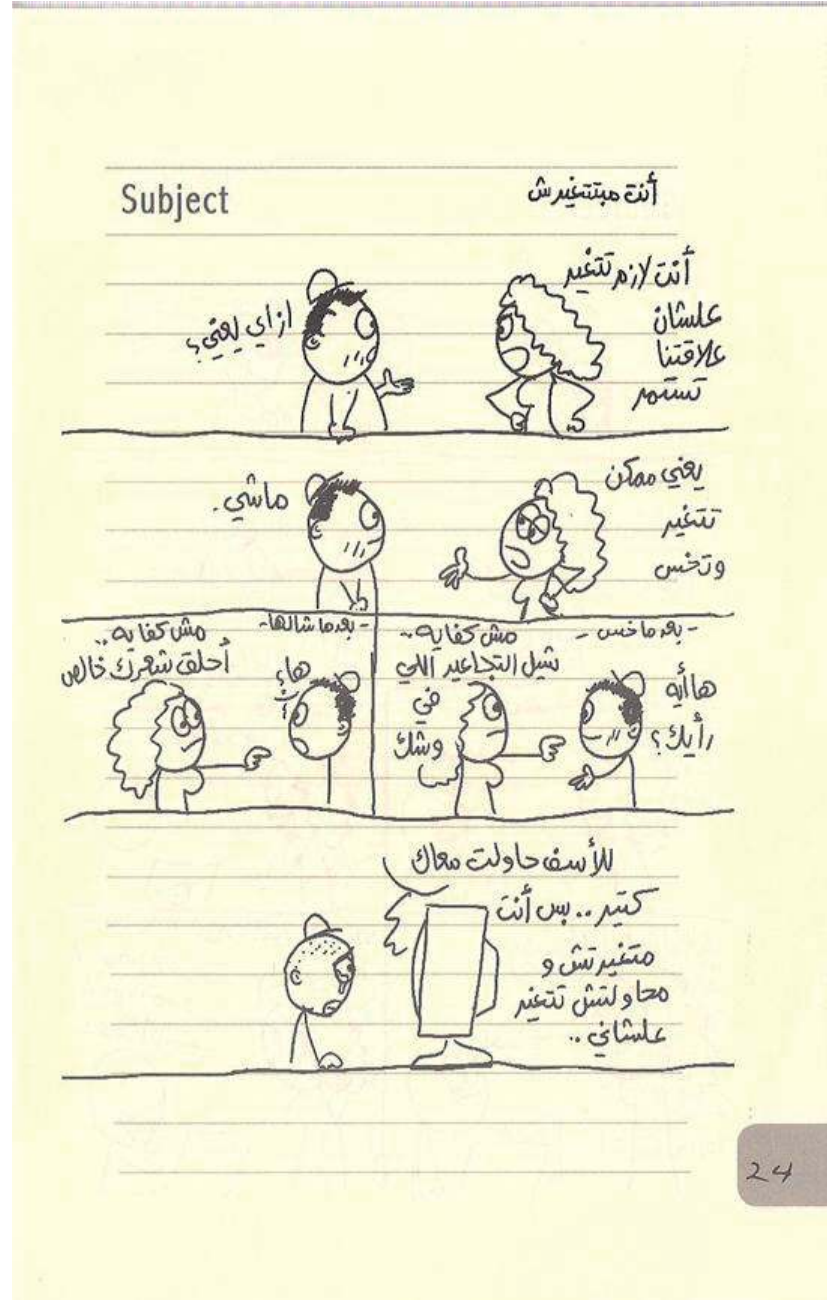 Subject
أنت مبتتغيرش
أنت لازم تتغير
علشان
علاقتنا
تستمر
ازاي يعني؟
يعني ممكن
تتغير
وتخس
ماشي.
- بعد ما خس -
ها أيه
رأيك؟
مش كفايه..
شيل التجاعيد اللي
في
وشك
- بعد ما شالها -
ها؟
مش كفايه..
أحلق شعرك خالص
للأسف حاولت معاك
كتير.. بس أنت
متغيرتش و
محاولتش تتغير
علشاني..
24